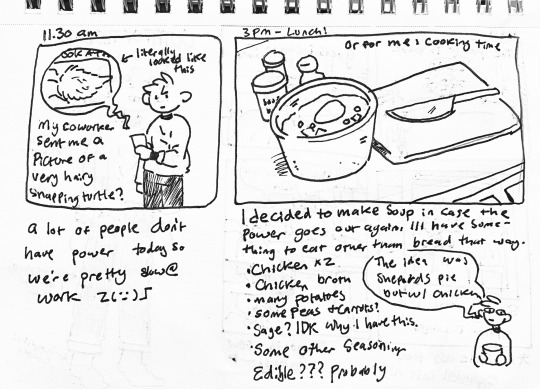 11.30 am
LOOK AT
← literally
looked like
this
My coworker
sent me a
Picture of a
very hairy
snapping turtle?
a lot of people don't
have power today so
we're pretty slow @
work
3pm - Lunch!
Or for me: Cooking time
I decided to make Soup in case the
Power goes out again. I'll have Some-
thing to eat other than bread that way.
• Chicken x2
• Chicken broth
• many potatoes
• some Peas & Carrots?
• Sage? IDK why I have this.
• Some other Seasoning
Edible??? Probably
The idea was
Shepards pie
but w/ chicken